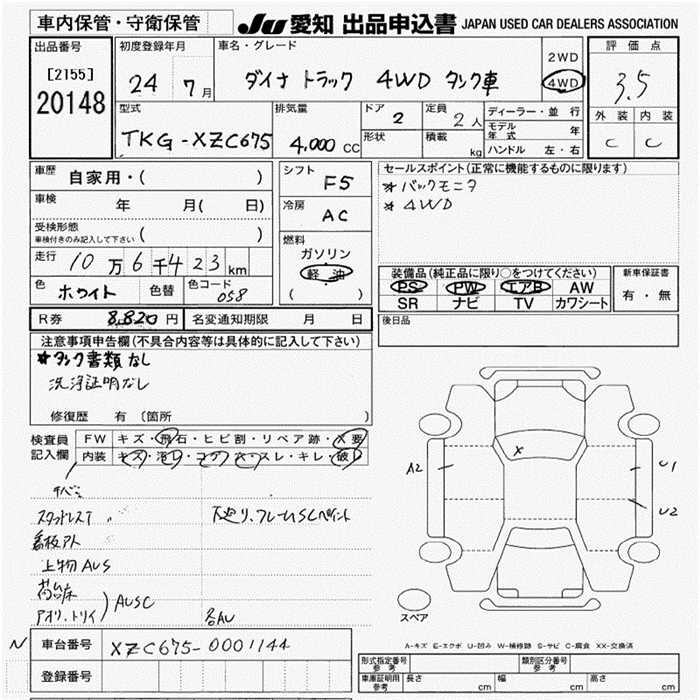 車内保管・守衛保管
JU 愛知 出品申込書 JAPAN USED CAR DEALERS ASSOCIATION
出品番号
[2155]
20148
初度登録年月
24年 7月
車名・グレード
ダイナ トラック 4WD タンク車
2WD
4WD
評価点
3.5
外装 内装
C C
型式
TKG-XZC675
排気量
4,000 CC
ドア
2
形状
定員
2人
積載
kg
ディーラー・並行
モデル年式 年
ハンドル 左・右
車歴 自家用・( )
車検 年 月( 日)
受検形態
車検付きのみ記入して下さい ( )
走行 10万6千423km
色 ホワイト 色替 色コード 058
シフト
F5
冷房
AC
燃料
ガソリン
軽油
( )
セールスポイント(正常に機能するものに限ります)
* バックモニタ
* 4WD
装備品(純正品に限り○をつけてください)
PS PW エアB AW
SR ナビ TV カワシート
新車保証書
有・無
R券 8,820円 名変通知期限 月 日
後日品
注意事項申告欄(不具合内容等は具体的に記入して下さい)
*タンク書類なし
洗浄証明なし
修復歴 有 〔箇所 〕
検査員記入欄
FW キズ・飛石・ヒビ割・リペア跡・X要
内装 キズ・汚レ・コゲ・穴・スレ・キレ・破レ
スタッドレスT
下廻り、フレームSCペイント
看板アト
上物AUS
荷台床
アオリ、トリイ
AUSC
各AU
A2
X
U1
U2
スペア
A-キズ E-エクボ U-凹み W-補修跡 S-サビ C-腐食 XX-交換済
N 車台番号 XZC675-0001144
登録番号
型式指定番号 参考
類別区分番号 参考
車庫証明用 参考 長さ cm 幅 cm 高さ cm